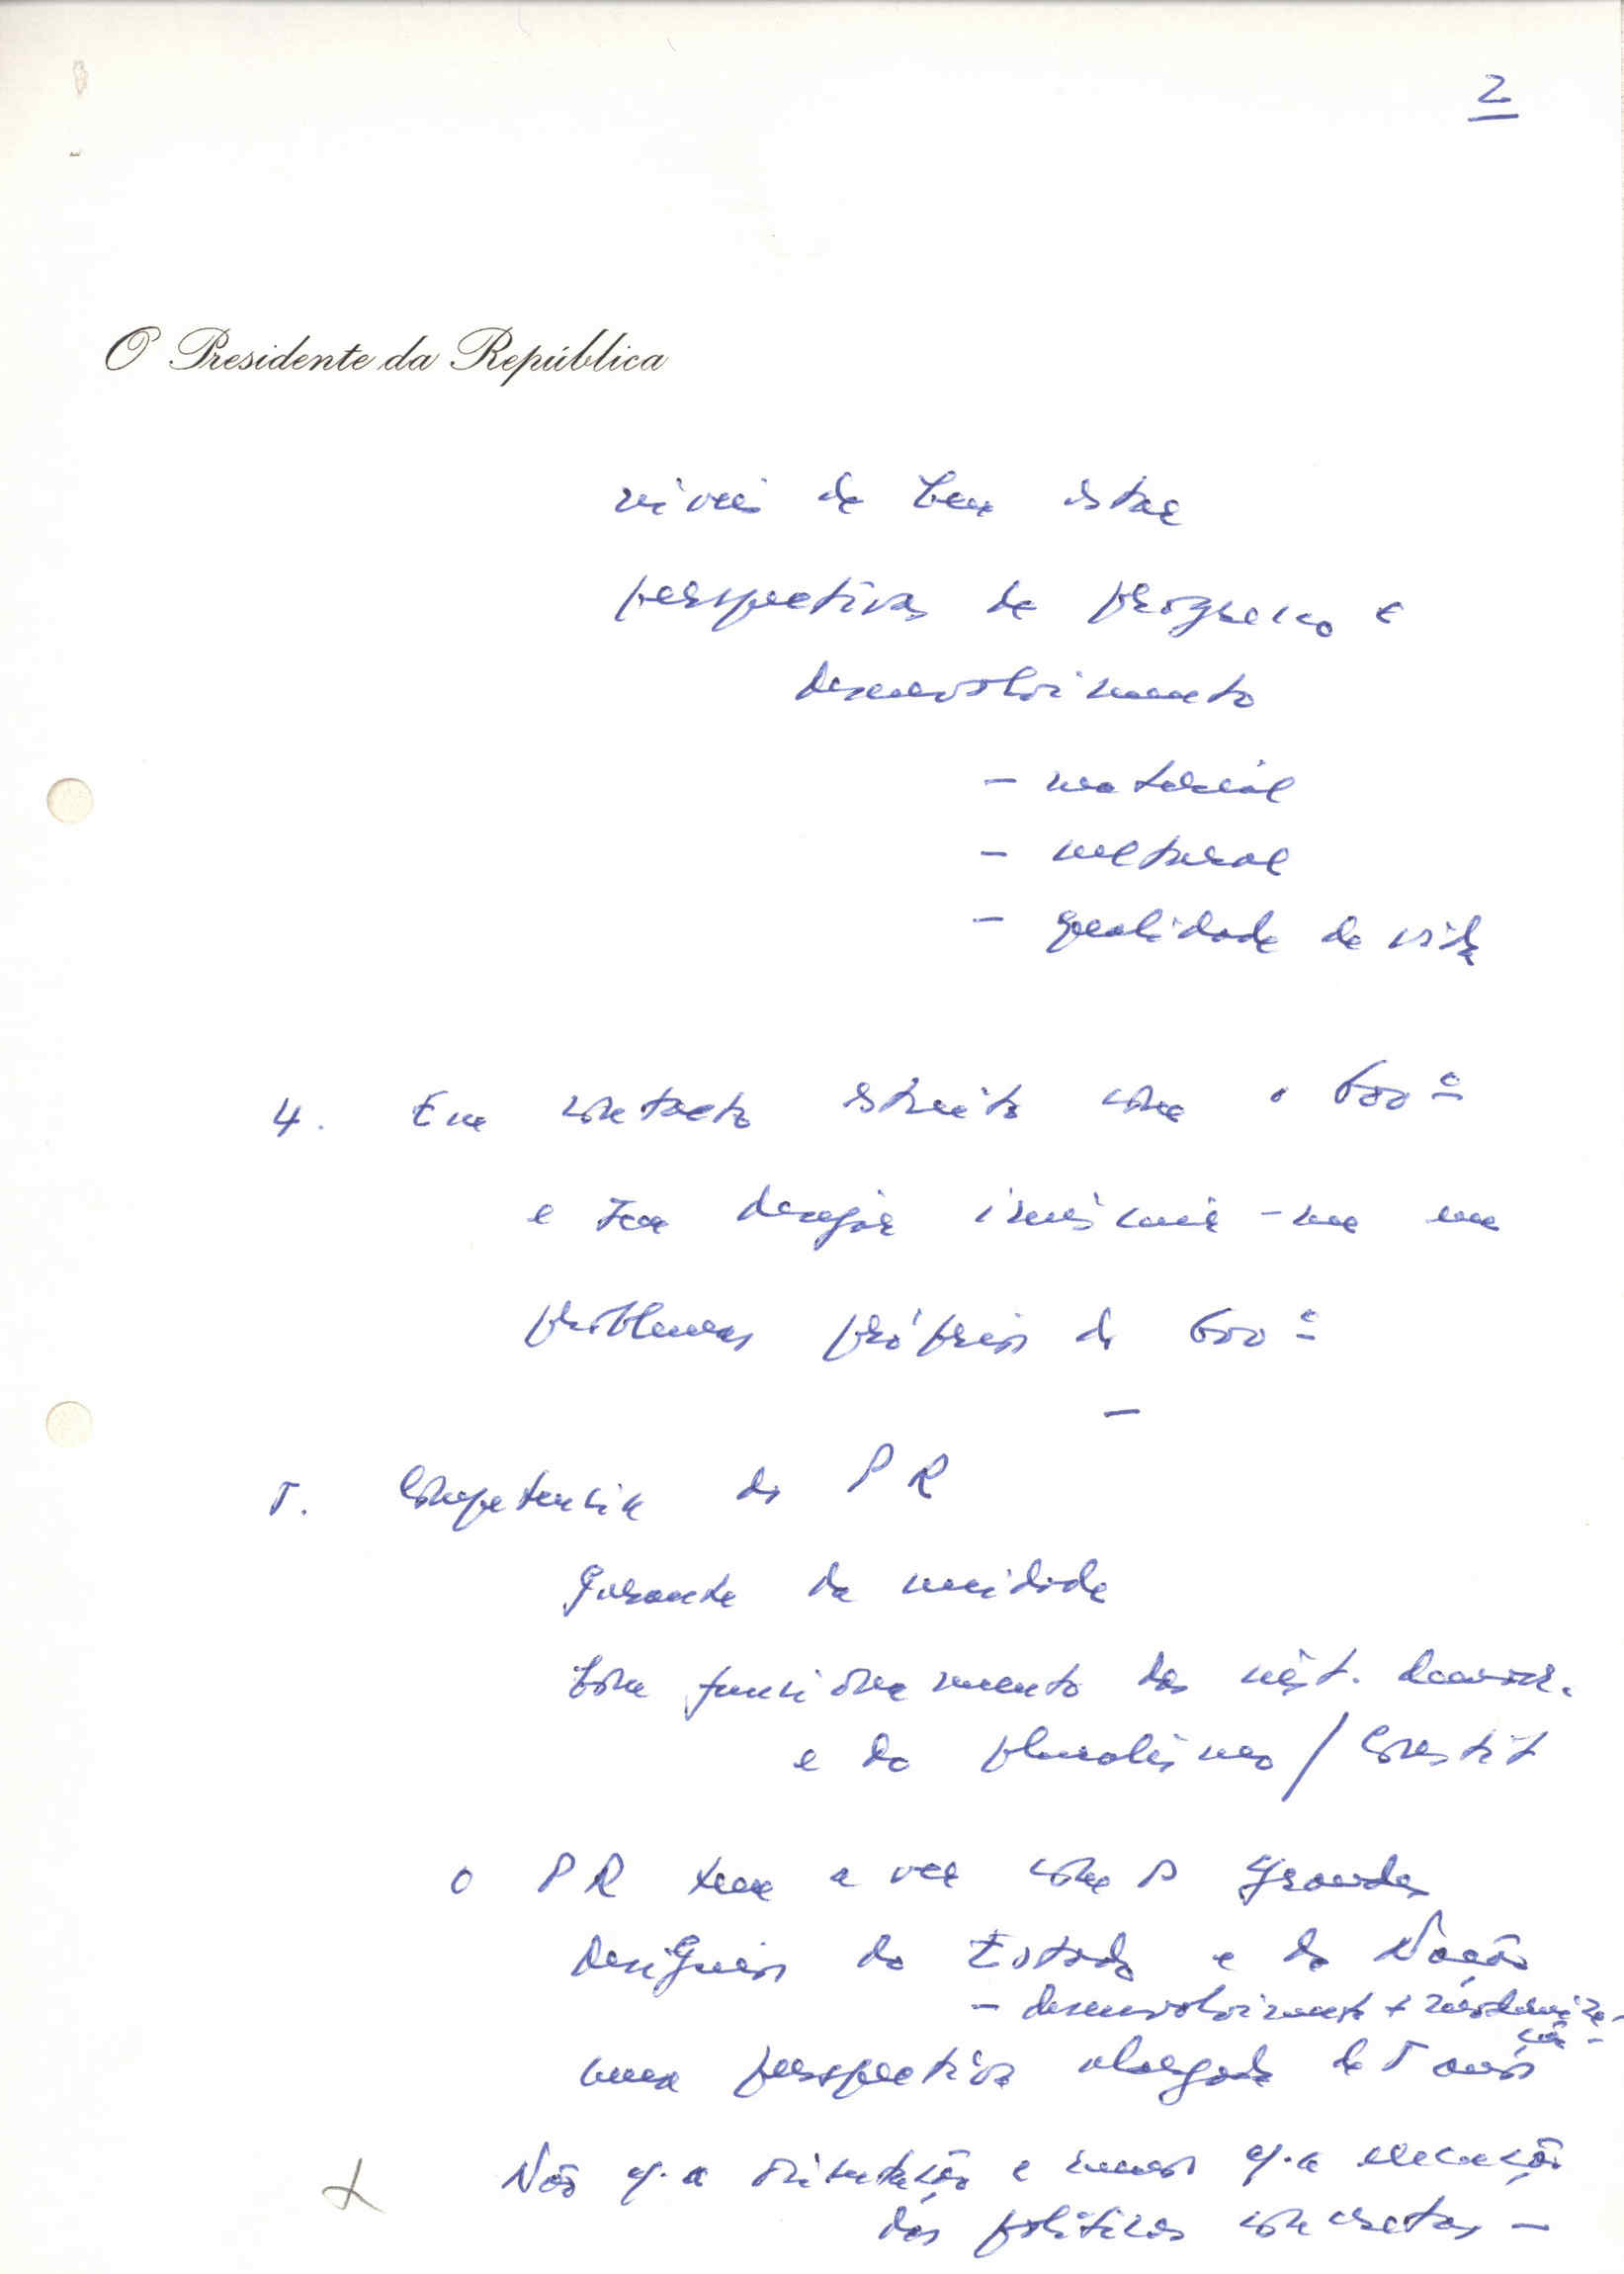 2
O Presidente da República
níveis de bem estar
perspectivas de progresso e
desenvolvimento
- material
- cultural
- qualidade de vida
4. Em contacto estreito com o Govº
e sem desejar imiscuir-me em
problemas próprios do Govº
-
5. Competência do PR
Garante da unidade
bom funcionamento das inst. democr.
e do pluralismo / Constit
O PR tem a ver com os grandes
desígnios do Estado e da Nação
- desenvolvimento + moderniza-
ção -
uma perspectiva alargada de 5 anos
Não q. a orientação e menos q. a execução
das políticas concretas -